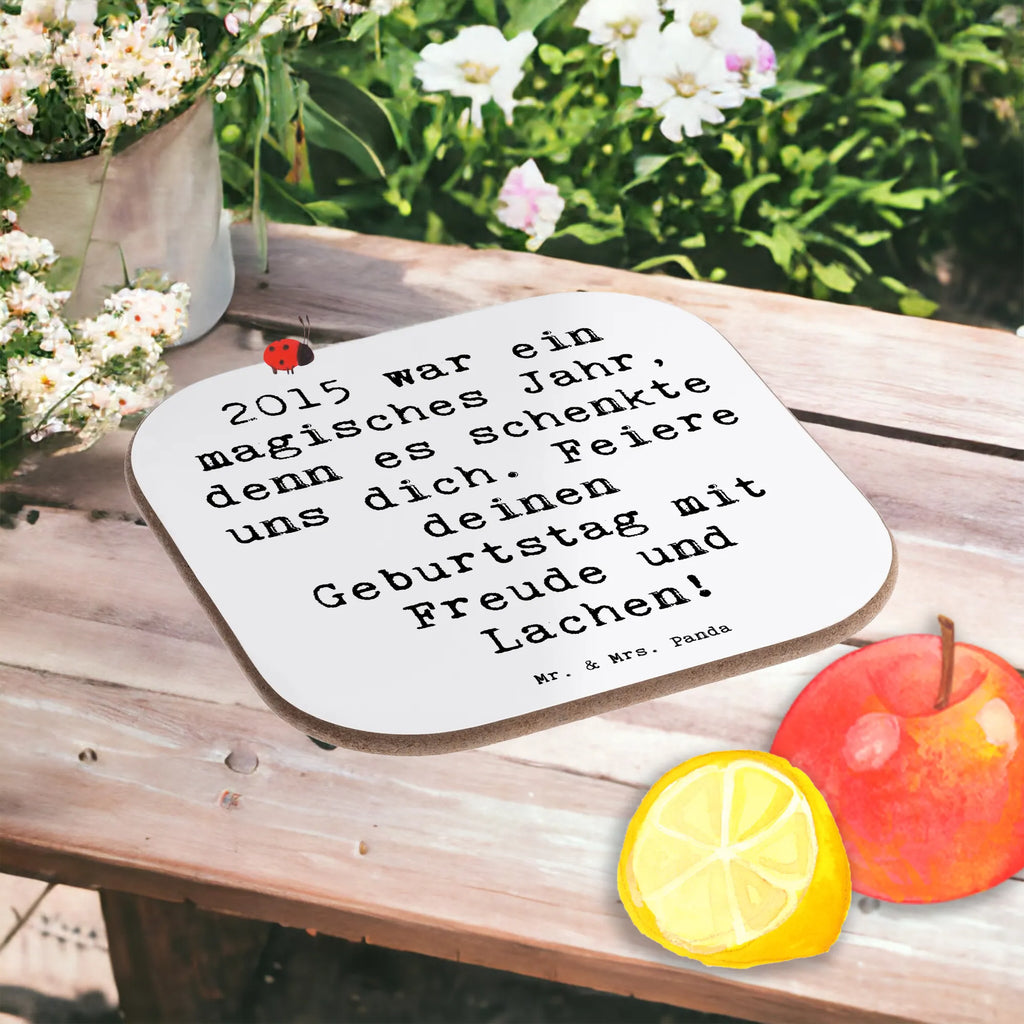 2015 war ein
magisches Jahr,
denn es schenkte
uns dich. Feiere
deinen
Geburtstag mit
Freude und
Lachen!
Mr. & Mrs. Panda